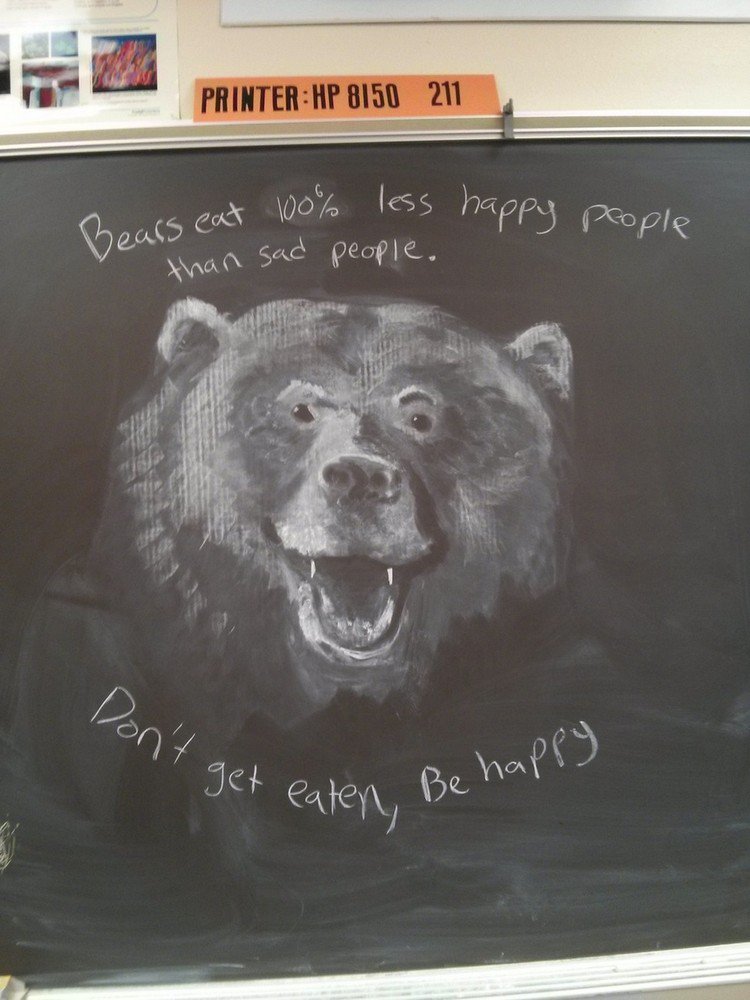 PRINTER: HP 8150 211
Bears eat 100% less happy people
than sad people.
Don't get eaten, Be happy